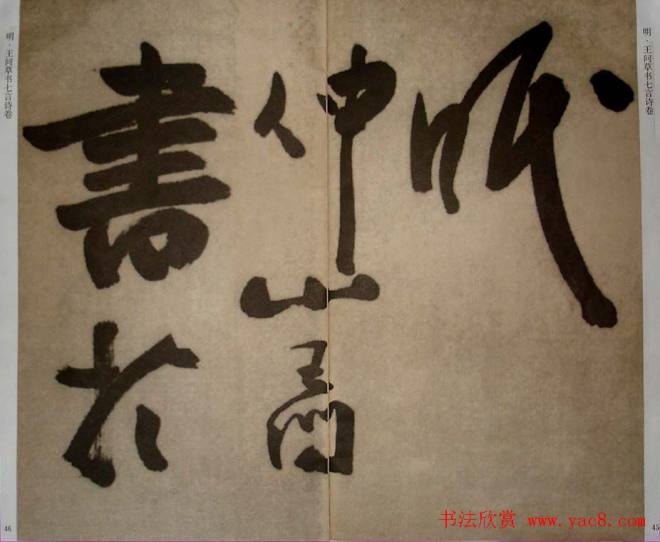 明·王问草书七言诗卷
眠
仲山王問
書於
明·王问草书七言诗卷
45
46
书法欣赏 www.yac8.com